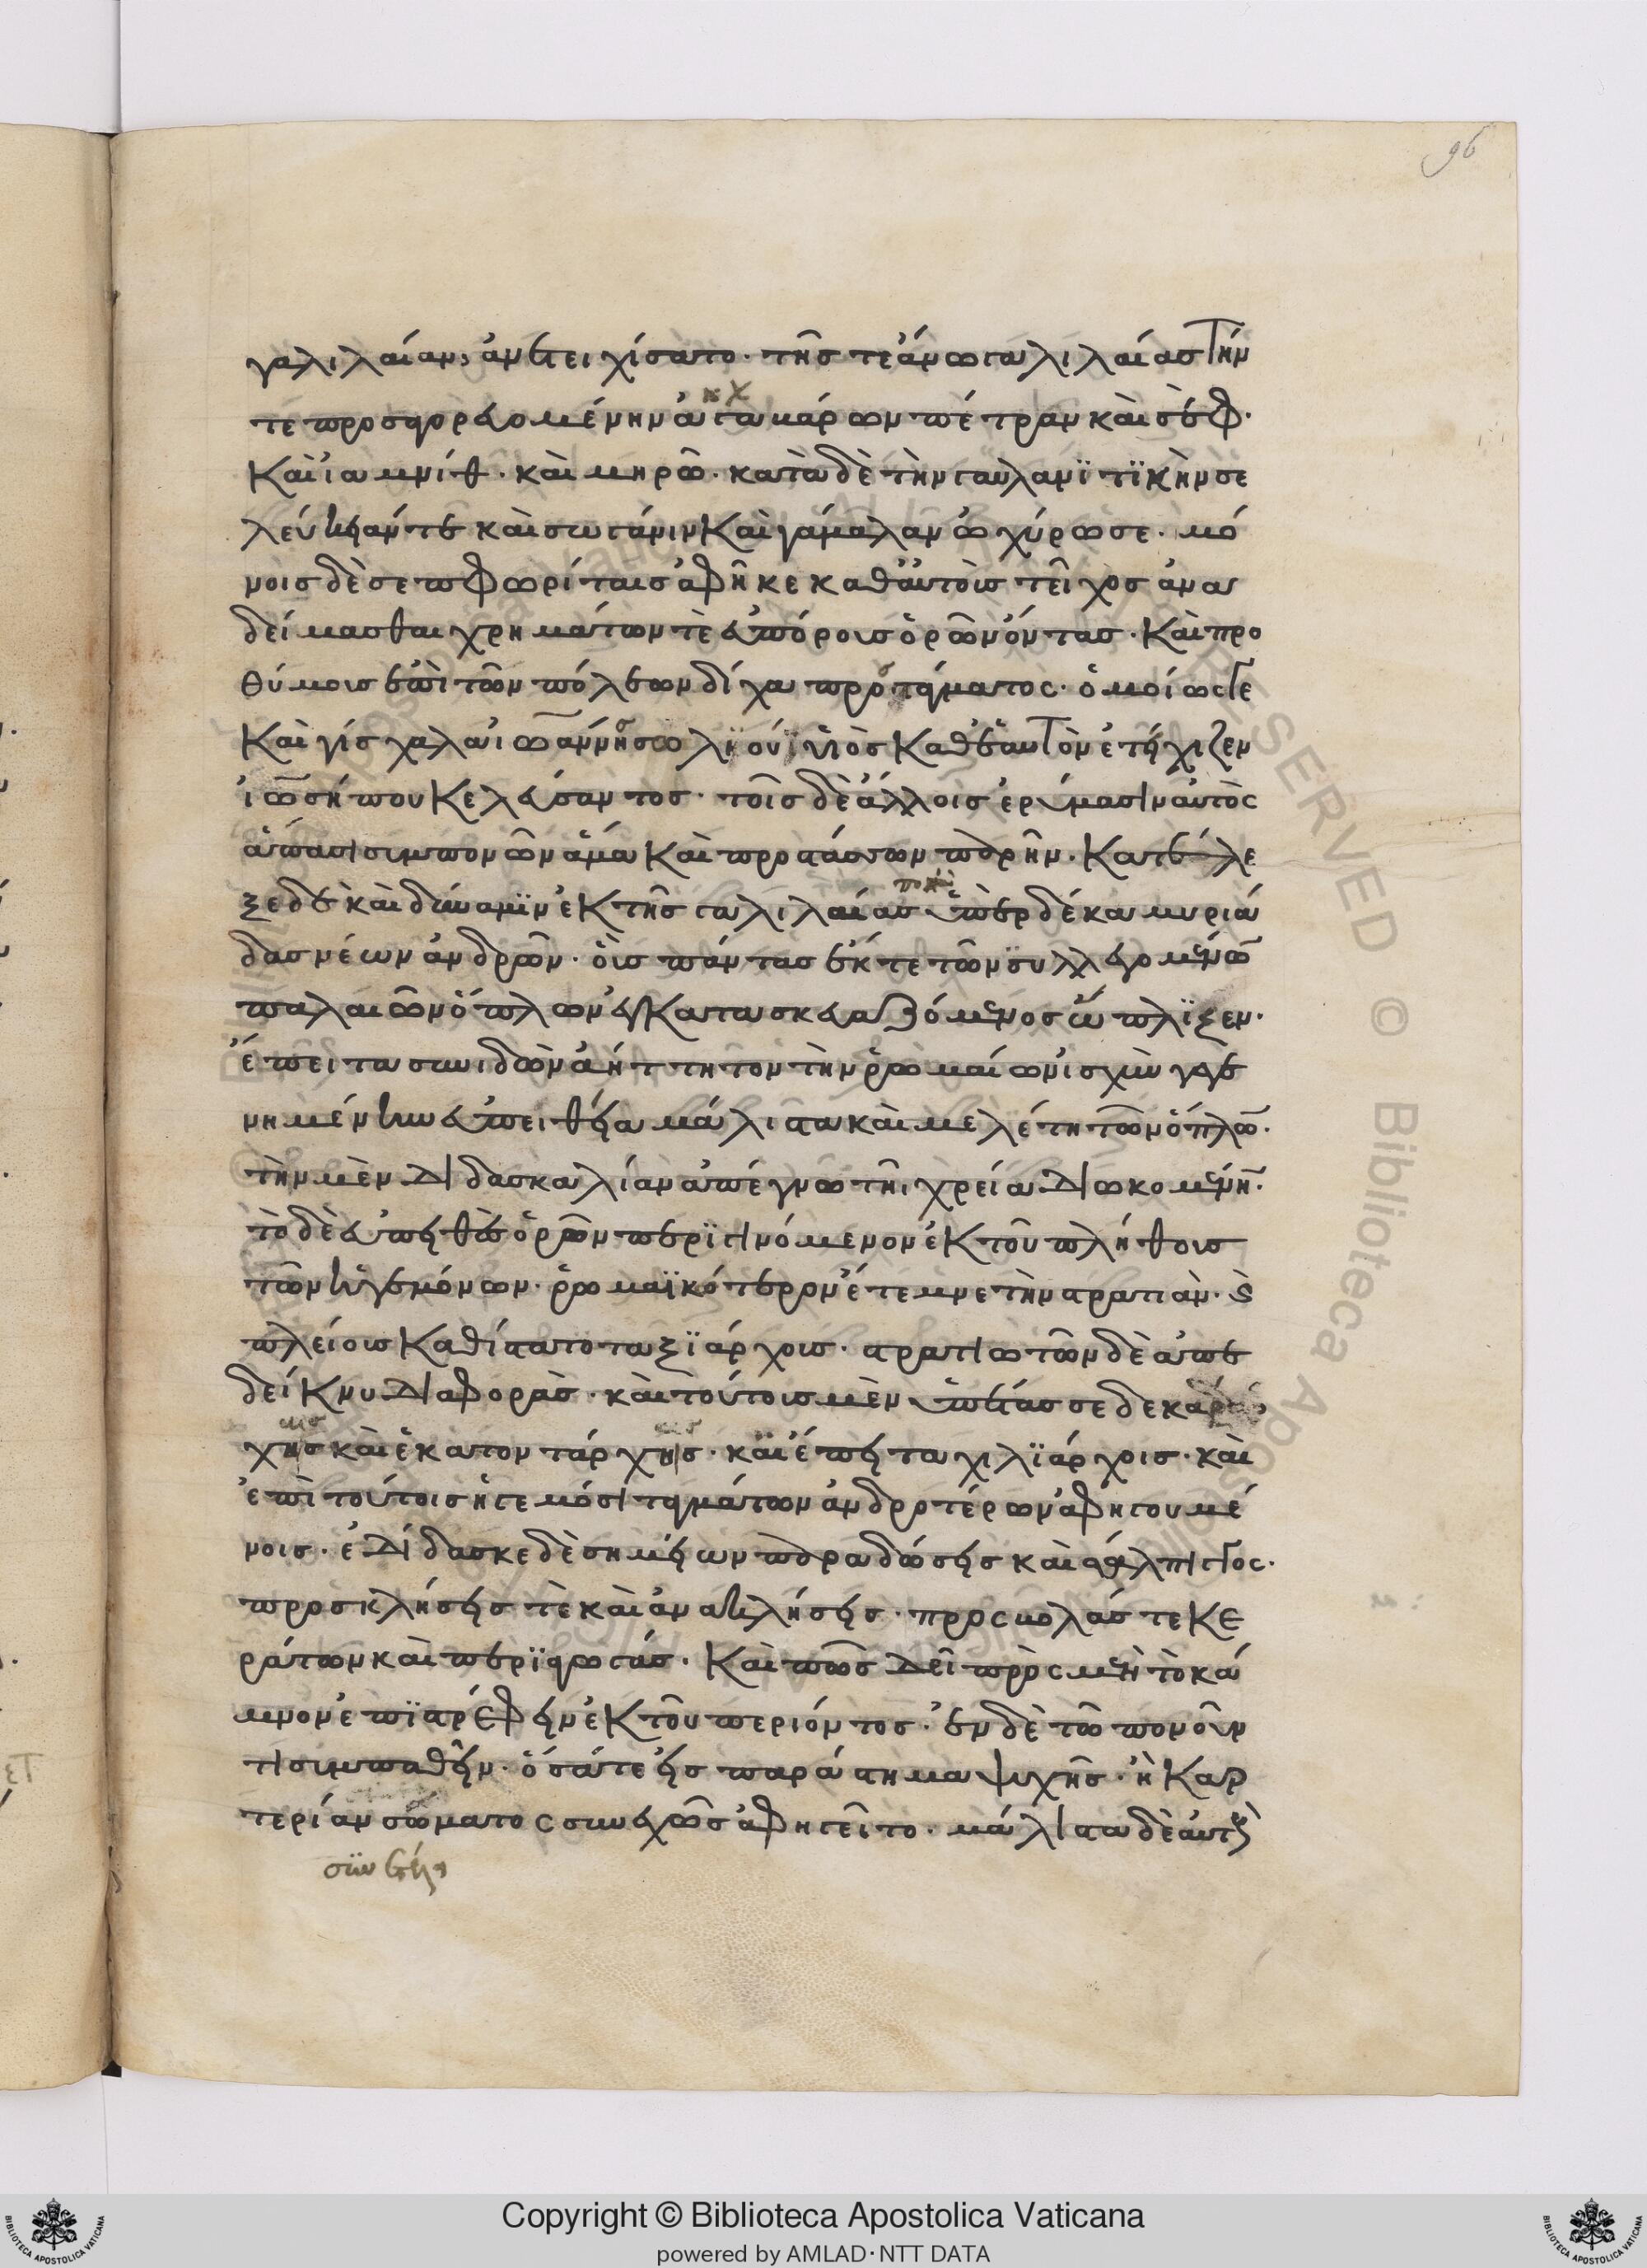 96
γαλιλαίαν, ἀνετειχίσατο. τῆς τε ἄνω γαλιλαίας τήν
τε προσαγορευομένην ἀγχακάρων πέτραν καὶ σέφ.
καὶ ἰαμνίθ. καὶ μηρῶ. κατὰ δὲ τὴν γαυλανϊτϊκὴν σε
λεύκειάν τε καὶ σωγάνιν καὶ γάμαλαν ὠχύρωσε. μό
νοις δὲ σεπφωρίταις ἀφῆκε καθ' αὑτοὺς τεῖχος ἀνα
δείμασθαι χρημάτων τε εὐπόρους ὁρῶν ὄντας. καὶ προ
θύμους ἐπὶ τῶν πόλεων δίχα προστάγματος. ὁμοίως δὲ
καὶ γίσχαλα ἰωάννης ὁ ληουΐ υἱὸς καθ' ἑαυτὸν ἐτείχιζεν
ἰωσήπου κελεύσαντος. τοῖς δὲ ἄλλοις ἐρύμασιν αὐτὸς
ἅπασι συμπονῶν ἅμα καὶ προστάσσων παρῆν. κατέλε
ξε δὲ καὶ δύναμϊν ἐκ τῆς γαλιλαίας ὑπὲρ δέκα μυριά
δας νέων ἀνδρῶν. οὓς πάντας ἔκ τε τῶν συλλεγομένων
παλαιῶν ὅπλων ἐγκατασκευαζόμενος ὥπλϊζεν.
ἔπειτα συνιδὼν ἀήττητον τὴν ῥωμαίων ἰσχὺν γεγε
νημένην εὐπειθείᾳ μάλιστα καὶ μελέτῃ τῶν ὅπλων.
τὴν μὲν διδασκαλίαν ἀπέγνω τῇ χρείᾳ διωκομένην.
τὸ δὲ εὐπειθὲς ὁρῶν περϊγινόμενον ἐκ τοῦ πλήθους
τῶν ἡγεμόνων. ῥωμαϊκότερον ἔτεμνε τὴν στρατιάν. καὶ
πλείους καθίστατο ταξϊάρχους. στρατιωτῶν δὲ ἀπε
δείκνυ διαφοράς. καὶ τούτους μὲν ὑπέτασσε δεκαδάρ
χαις καὶ ἑκατοντάρχαις. καὶ ἔπειτα χιλϊάρχοις. καὶ
ἐπὶ τούτοις ἡγεμόσι ταγμάτων ἁνδροτέρων ἀφηγουμέ
νοις. ἐδίδασκε δὲ σημείων παραδόσεις καὶ σάλπιγγος.
προσκλήσεις τε καὶ ἀνακλήσεις. προσβολάς τε κε
ράτων καὶ περϊαγωγάς. καὶ πῶς δεῖ πρὸς μὲν τὸ κά
μνον ἐπϊστρέφειν ἐκ τοῦ περιόντος. ἐν δὲ τῷ πονοῦν
τι συμπαθεῖν. ὅσα τε εἰς παράστημα ψυχῆς. ἢ καρ
τερίαν σώματος συνεχῶς ἀφηγεῖτο. μάλιστα δὲ αὐτοὺς